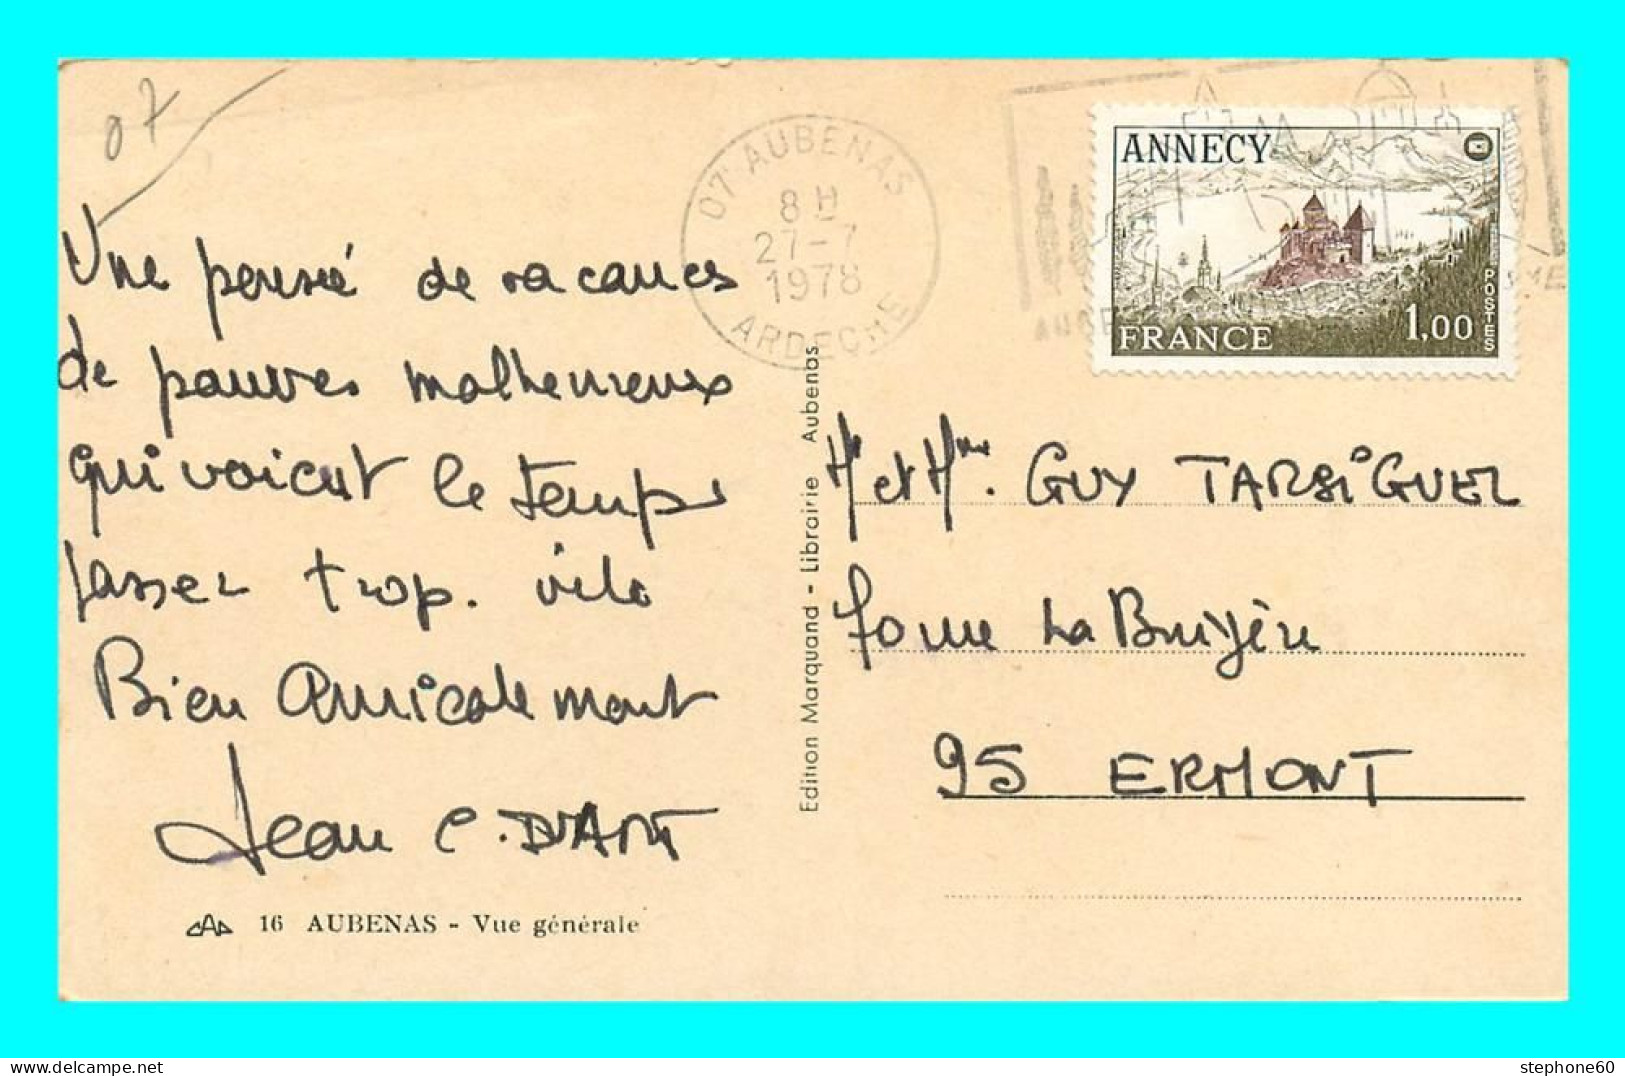 07
07 AUBENAS
8 H
27-7
1978
ARDECHE
ANNECY
FRANCE
1,00
POSTES
Une pensée de vacances
de pauvres malheureux
qui voient le temps
passer trop. vite
Bien amicalement
Jean C. D'ART
16 AUBENAS - Vue générale
Edition Marquand - Librairie Aubenas
Mr et Mme. GUY TARSIGUEL
La Bruyère
95 ERMONT
stephone60